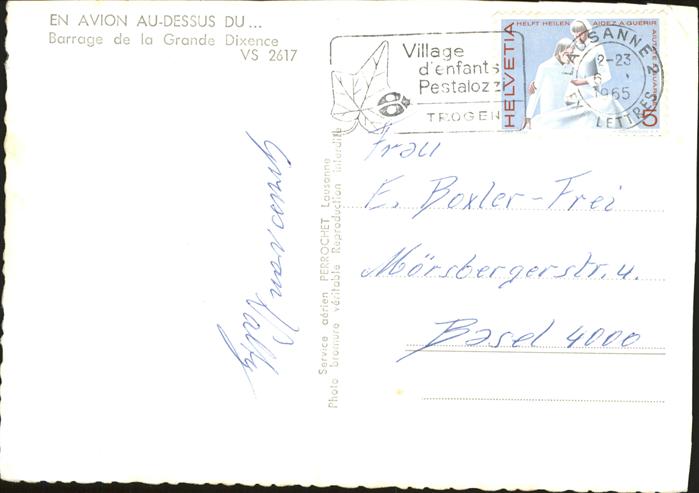 EN AVION AU-DESSUS DU ...
Barrage de la Grande Dixence
VS 2617
Village
d'enfants
Pestalozzi
TROGEN
HELVETIA
HELFT HEILEN AIDEZ A GUÉRIR
5
LAUSANNE 2
2-23
1965
LETTRES
Frau
E. Boxler-Frei
Mörsbergerstr. 4.
Basel 4000
Service aérien PERROCHET Lausanne
Photo bromure véritable Reproduction interdite
Gruss von